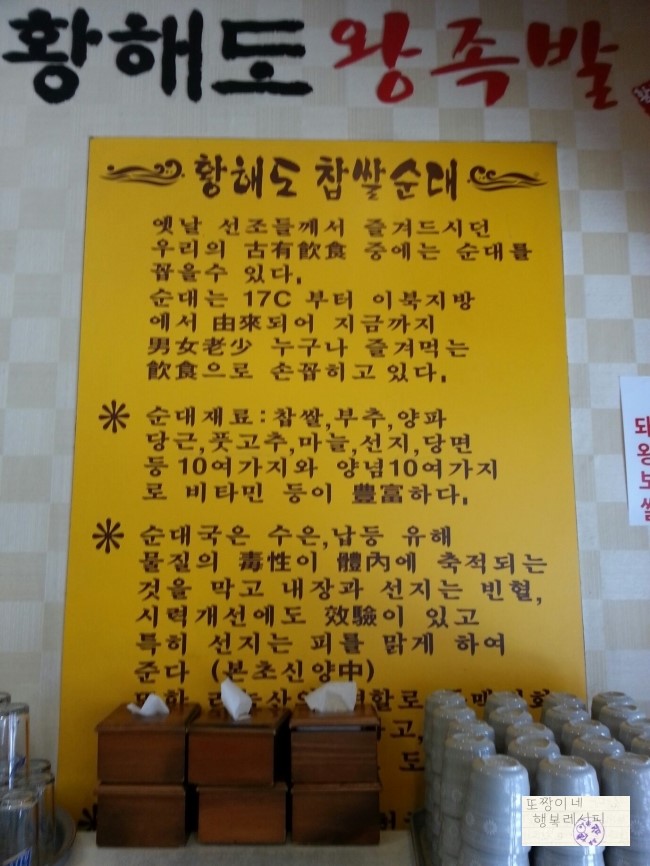 황해도 왕족발
황해도 찹쌀순대
옛날 선조들께서 즐겨드시던
우리의 古有飮食 중에는 순대를
꼽을수 있다.
순대는 17C 부터 이북지방
에서 由來되어 지금까지
男女老少 누구나 즐겨먹는
飮食으로 손꼽히고 있다.
순대재료:찹쌀,부추,양파
당근,풋고추,마늘,선지,당면
등 10여가지와 양념10여가지
로 비타민 등이 豊富하다.
순대국은 수은,납등 유해
물질의 毒性이 體內에 축적되는
것을 막고 내장과 선지는 빈혈,
시력개선에도 效驗이 있고
특히 선지는 피를 맑게 하여
준다 (본초신양中)
고,
도
돼
왕
보
쌀
또짱이네
행복레서피